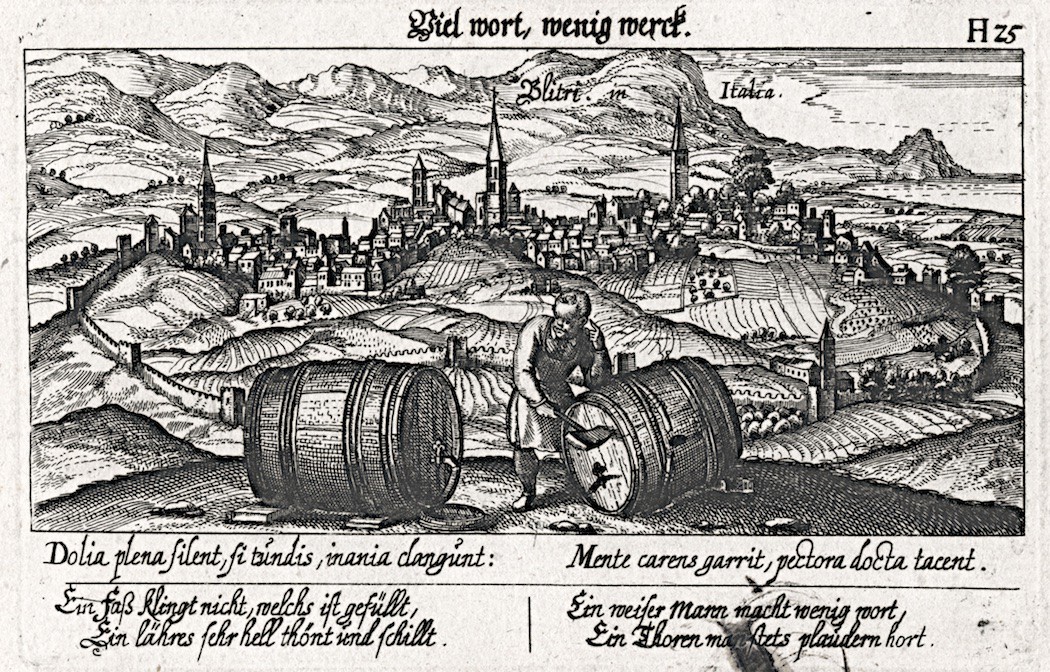 Viel wort, wenig werck.
H 25
Blitri. in Italia.
Dolia plena silent, si tundis, inania clangunt:
Mente carens garrit, pectora docta tacent.
Ein Faß klingt nicht, welchs ist gefüllt,
Ein lähres sehr hell thönt und schillt.
Ein weiser Mann macht wenig wort,
Ein Thoren stets plaudern hort.